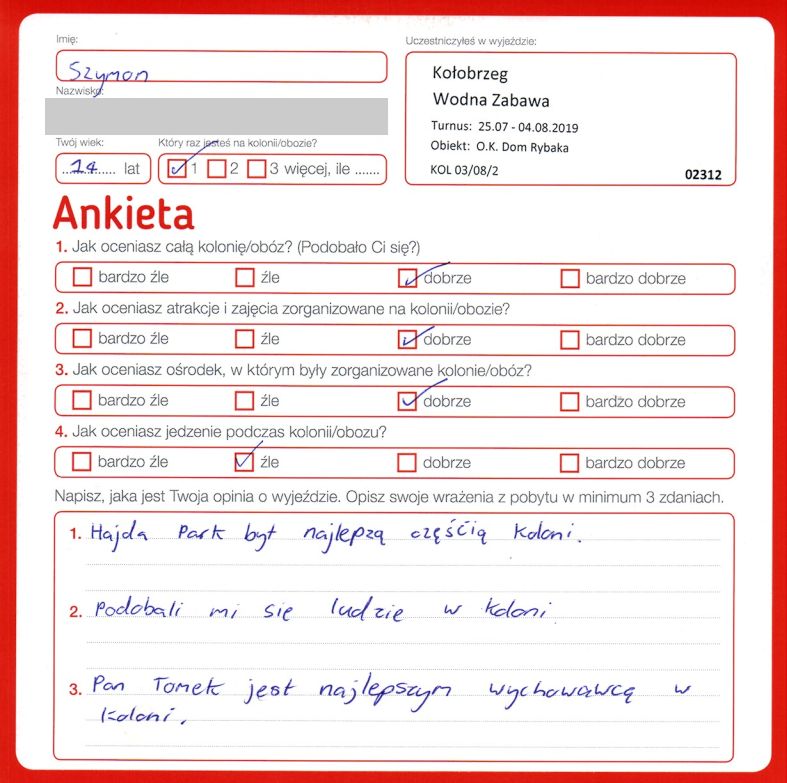 Imię:
Szymon
Nazwisko:
Twój wiek:
14 lat
Który raz jesteś na kolonii/obozie?
1 2 3 więcej, ile .......
Uczestniczyłeś w wyjeździe:
Kołobrzeg
Wodna Zabawa
Turnus: 25.07 - 04.08.2019
Obiekt: O.K. Dom Rybaka
KOL 03/08/2
02312
Ankieta
1. Jak oceniasz całą kolonię/obóz? (Podobało Ci się?)
bardzo źle źle dobrze bardzo dobrze
2. Jak oceniasz atrakcje i zajęcia zorganizowane na kolonii/obozie?
bardzo źle źle dobrze bardzo dobrze
3. Jak oceniasz ośrodek, w którym były zorganizowane kolonie/obóz?
bardzo źle źle dobrze bardzo dobrze
4. Jak oceniasz jedzenie podczas kolonii/obozu?
bardzo źle źle dobrze bardzo dobrze
Napisz, jaka jest Twoja opinia o wyjeździe. Opisz swoje wrażenia z pobytu w minimum 3 zdaniach.
1. Hajda Park był najlepzą częścią Koloni.
2. Podobali mi sie ludzie w koloni
3. Pan Tomek jest najlepszym wychowawcą w
koloni.